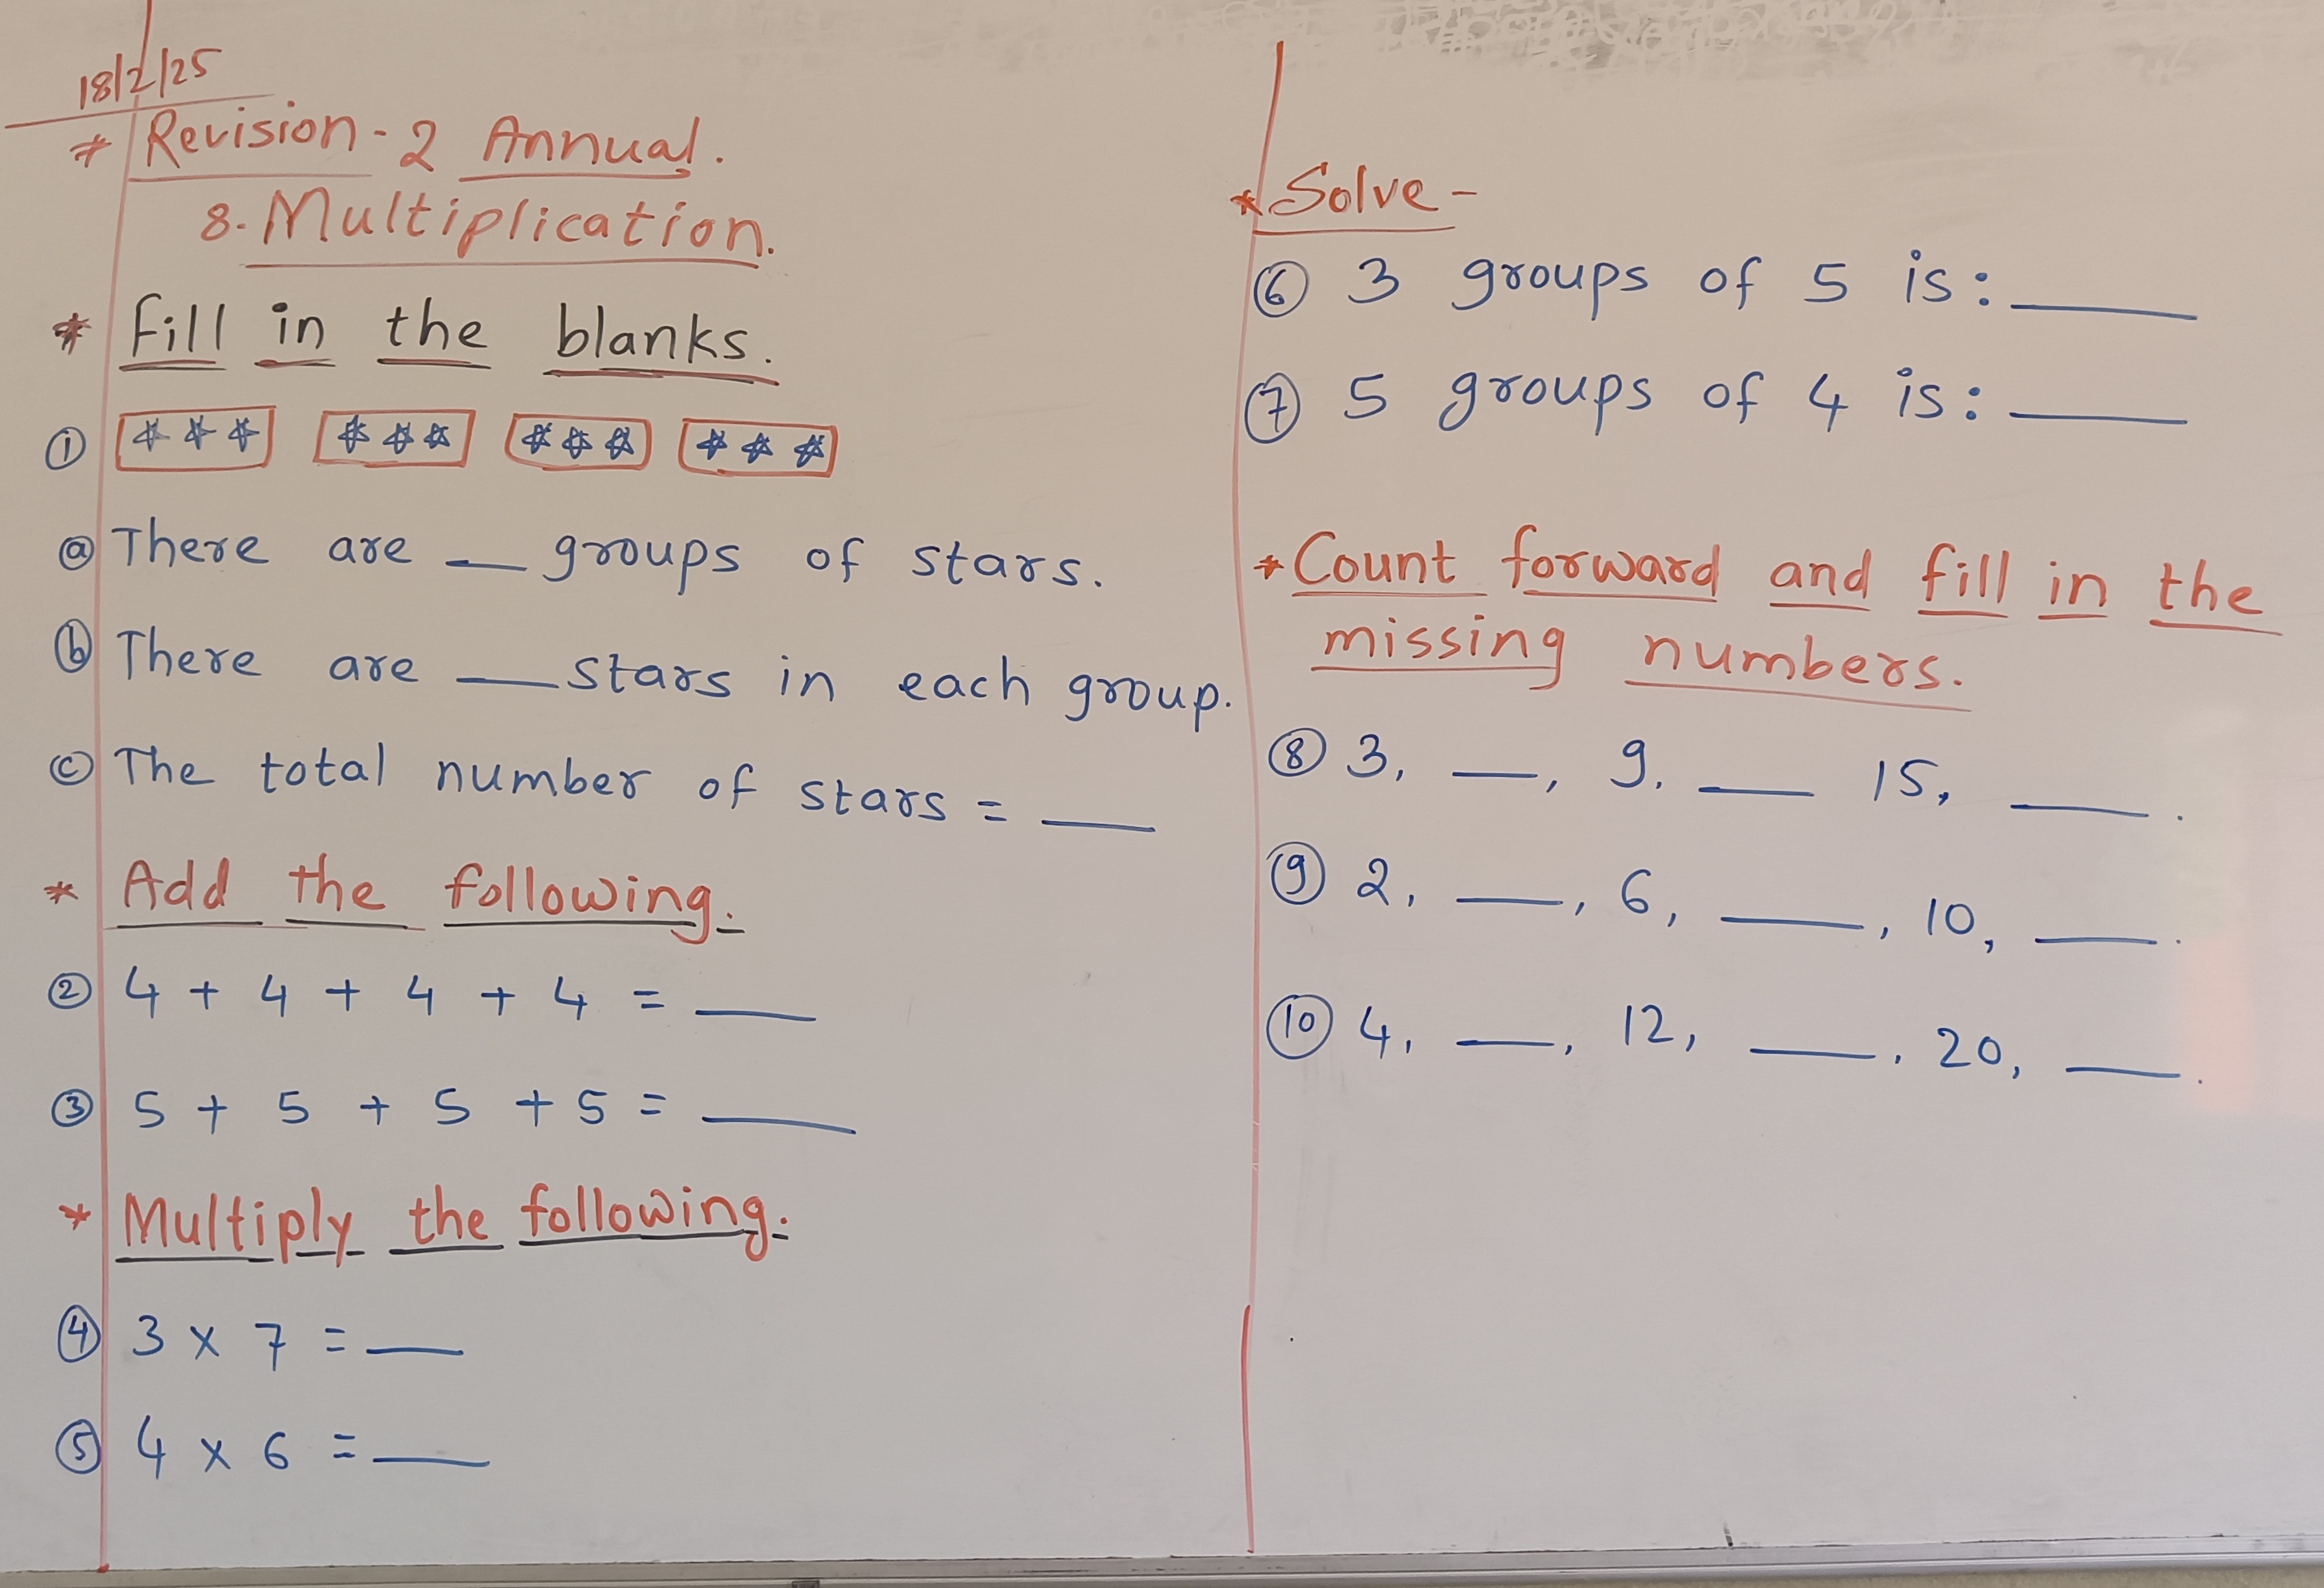 18/2/25
* Revision-2 Annual.
8. Multiplication.
* Fill in the blanks.
①
ⓐ There are __ groups of stars.
ⓑ There are __ stars in each group.
ⓒ The total number of stars = __
* Add the following.
② 4 + 4 + 4 + 4 = __
③ 5 + 5 + 5 + 5 = __
* Multiply the following:
④ 3 x 7 = __
⑤ 4 x 6 = __
* Solve -
⑥ 3 groups of 5 is: __
⑦ 5 groups of 4 is: __
* Count forward and fill in the
missing numbers.
⑧ 3, __, 9, __ 15, __.
⑨ 2, __, 6, __, 10, __.
⑩ 4, __, 12, __, 20, __.